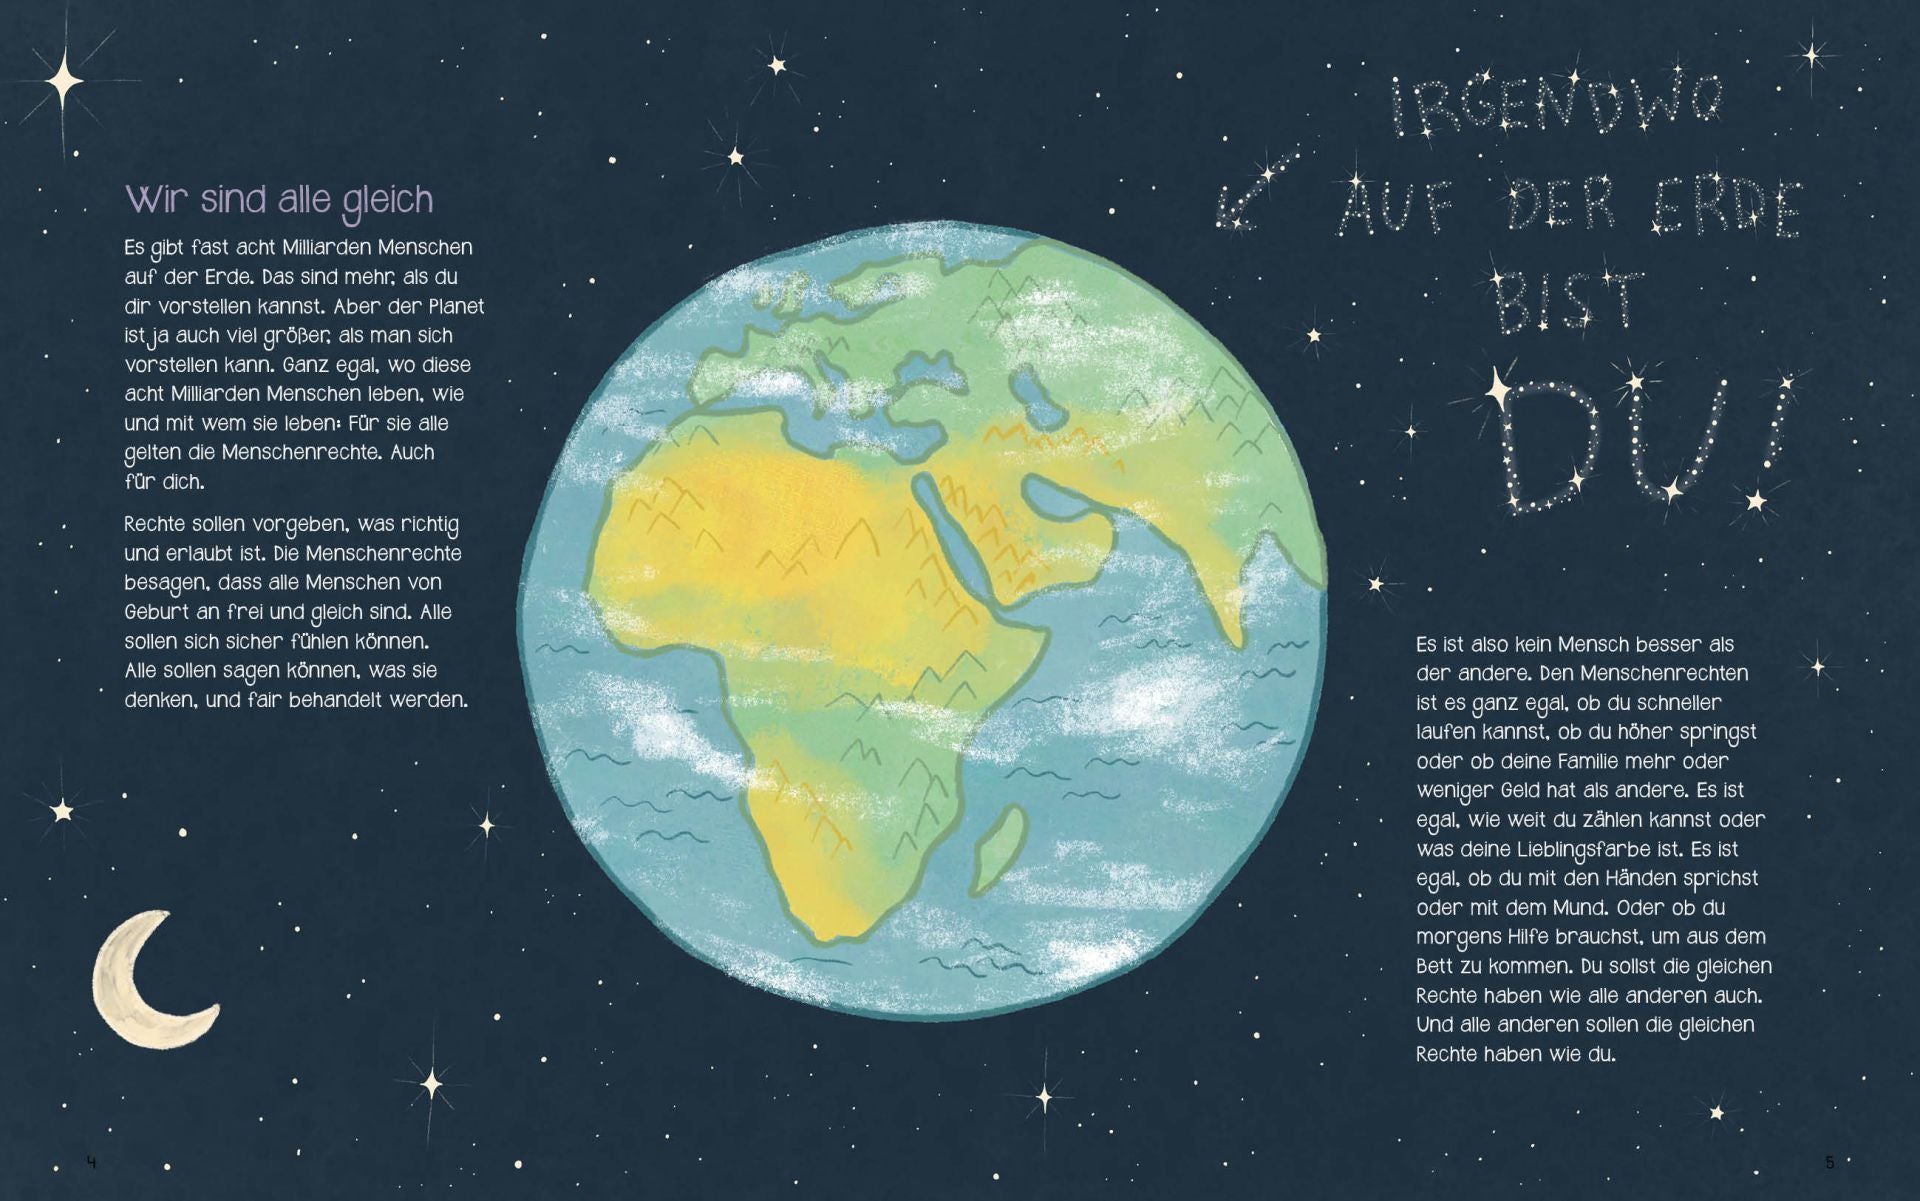 Wir sind alle gleich
Es gibt fast acht Milliarden Menschen
auf der Erde. Das sind mehr, als du
dir vorstellen kannst. Aber der Planet
ist ja auch viel größer, als man sich
vorstellen kann. Ganz egal, wo diese
acht Milliarden Menschen leben, wie
und mit wem sie leben: Für sie alle
gelten die Menschenrechte. Auch
für dich.
Rechte sollen vorgeben, was richtig
und erlaubt ist. Die Menschenrechte
besagen, dass alle Menschen von
Geburt an frei und gleich sind. Alle
sollen sich sicher fühlen können.
Alle sollen sagen können, was sie
denken, und fair behandelt werden.
4
IRGENDWO
AUF DER ERDE
BIST
DU!
Es ist also kein Mensch besser als
der andere. Den Menschenrechten
ist es ganz egal, ob du schneller
laufen kannst, ob du höher springst
oder ob deine Familie mehr oder
weniger Geld hat als andere. Es ist
egal, wie weit du zählen kannst oder
was deine Lieblingsfarbe ist. Es ist
egal, ob du mit den Händen sprichst
oder mit dem Mund. Oder ob du
morgens Hilfe brauchst, um aus dem
Bett zu kommen. Du sollst die gleichen
Rechte haben wie alle anderen auch.
Und alle anderen sollen die gleichen
Rechte haben wie du.
5